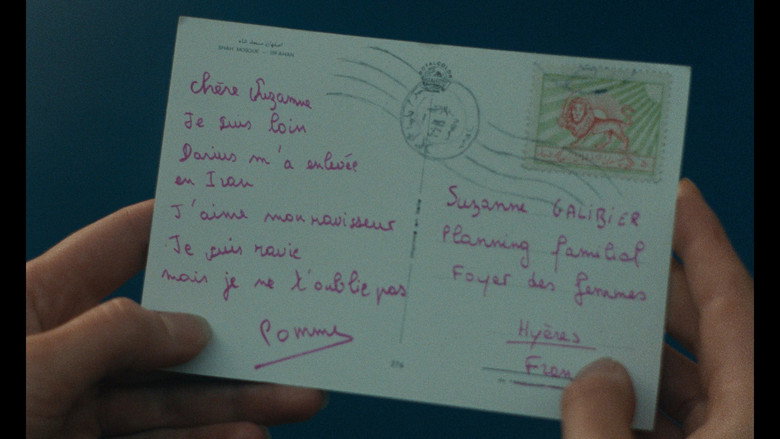 اصفهان مسجد شاه
SHAH MOSQUE - ISFAHAN
Chère Suzanne
Je suis loin
Darius m'a enlevée
en Iran
J'aime mon ravisseur
Je suis ravie
mais je ne t'oublie pas
Pomme
Suzanne GALIBIER
Planning familial
Foyer des femmes
Hyères
Fran